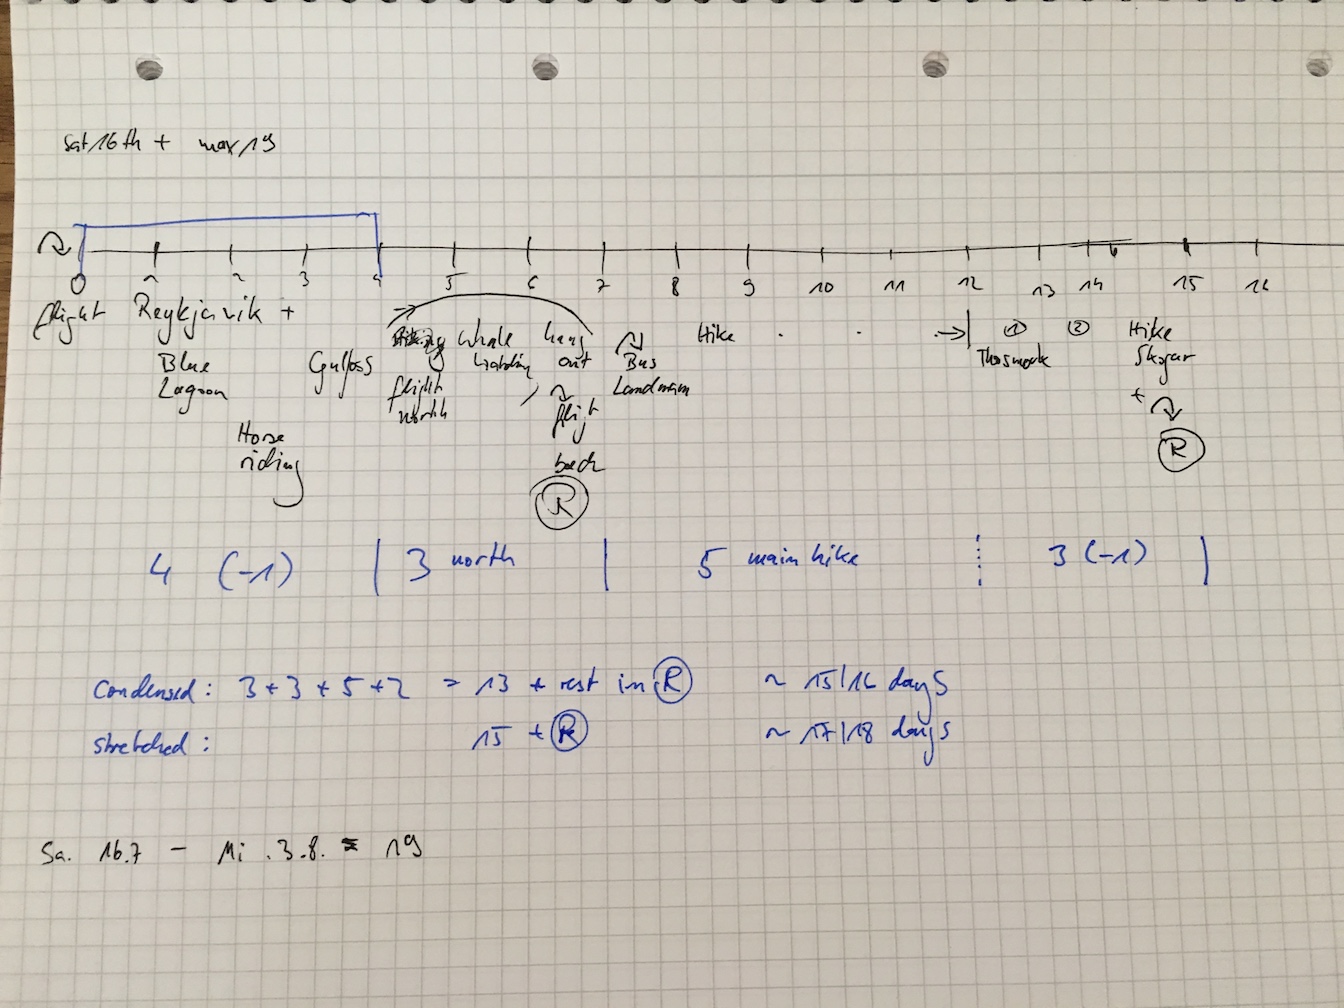 Sat 16th + max 19
0 1 2 3 4 5 6 7 8 9 10 11 12 13 14 15 16
flight Reykjavik +
Blue
Lagoon
Horse
riding
Gulfoss
flight
north
whale
watching
hang
out
flight
back
R
Bus
Landmann
Hike
1 2
Thosmork
Hike
Skogar
+
R
4 (-1) | 3 north | 5 main hike 3 (-1) |
Condensed: 3+3+5+2 = 13 + rest in R ~ 15/16 days
stretched: 15 + R ~ 17/18 days
Sa. 16.7 - Mi .3.8. = 19